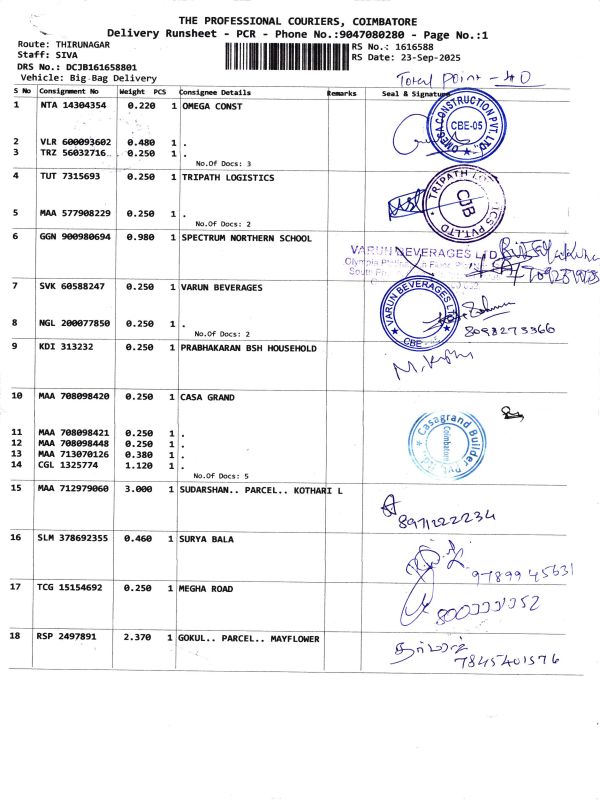 THE PROFESSIONAL COURIERS, COIMBATORE
Delivery Runsheet - PCR - Phone No.:9047080280 - Page No.:1
Route: THIRUNAGAR RS No.: 1616588
Staff: SIVA RS Date: 23-Sep-2025
DRS No.: DCJB161658801
Vehicle: Big Bag Delivery
Total Point - 40
S No Consignment No Weight PCS Consignee Details Remarks Seal & Signature
1 NTA 14304354 0.220 1 OMEGA CONST
OMEGA CONSTRUCTION PVT. LTD. CBE-05
2 VLR 600093602 0.480 1 .
3 TRZ 56032716 0.250 1 .
No.Of Docs: 3
4 TUT 7315693 0.250 1 TRIPATH LOGISTICS
CJB
5 MAA 577908229 0.250 1 .
No.Of Docs: 2
6 GGN 900980694 0.980 1 SPECTRUM NORTHERN SCHOOL
VARUN BEVERAGES LTD
7 SVK 60588247 0.250 1 VARUN BEVERAGES
VARUN BEVERAGES LTD CBE
8 NGL 200077850 0.250 1 .
8098273366
No.Of Docs: 2
9 KDI 313232 0.250 1 PRABHAKARAN BSH HOUSEHOLD
10 MAA 708098420 0.250 1 CASA GRAND
Casagrand Builder Pvt. Ltd. Coimbatore
11 MAA 708098421 0.250 1 .
12 MAA 708098448 0.250 1 .
13 MAA 713070126 0.380 1 .
14 CGL 1325774 1.120 1 .
No.Of Docs: 5
15 MAA 712979060 3.000 1 SUDARSHAN.. PARCEL.. KOTHARI L
8971222234
16 SLM 378692355 0.460 1 SURYA BALA
9789945631
17 TCG 15154692 0.250 1 MEGHA ROAD
18 RSP 2497891 2.370 1 GOKUL.. PARCEL.. MAYFLOWER
7845401576